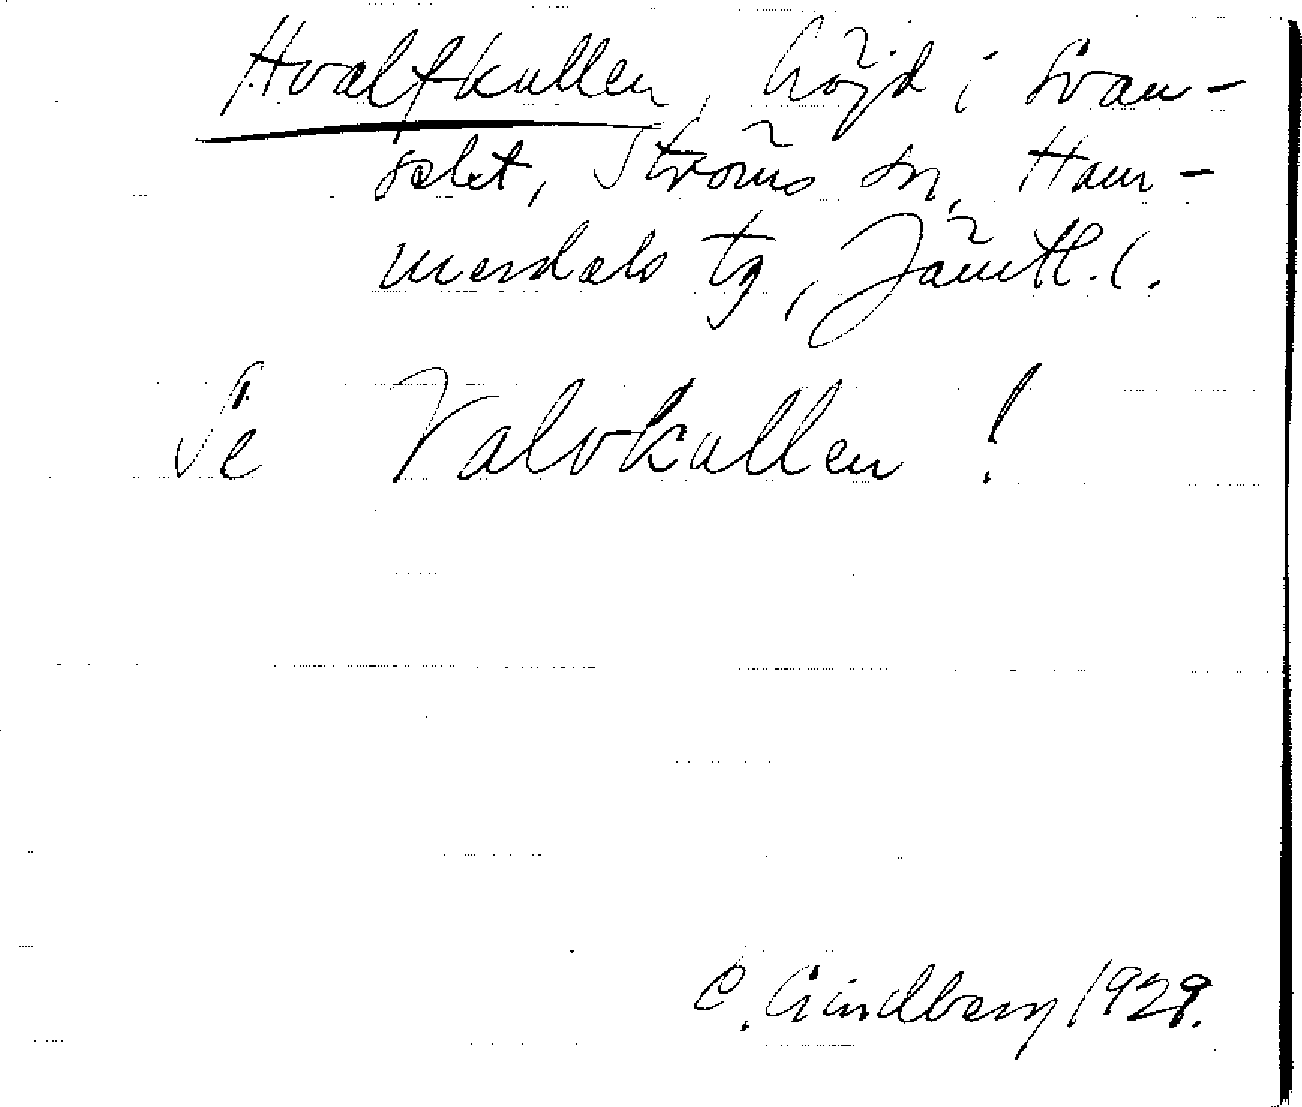 Hvalfkullen, höjd i Svan-
selet, Ströms sn, Ham-
merdals tg, Jämtl. l.
Se Valvkullen!
C. Lindberg 1929.